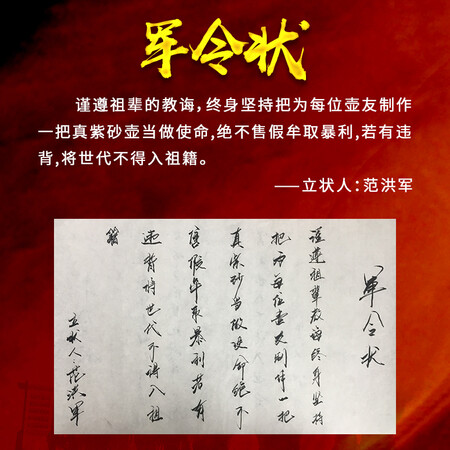 军令状
谨遵祖辈的教诲，终身坚持把为每位壶友制作
一把真紫砂壶当做使命,绝不售假牟取暴利,若有违
背,将世代不得入祖籍。
——立状人：范洪军
军令状
谨遵祖辈教诲终身坚持
把为每位壶友制作一把
真紫砂当做使命绝不
售假牟取暴利若有
违背将世代不得入祖
籍
立状人：范洪军